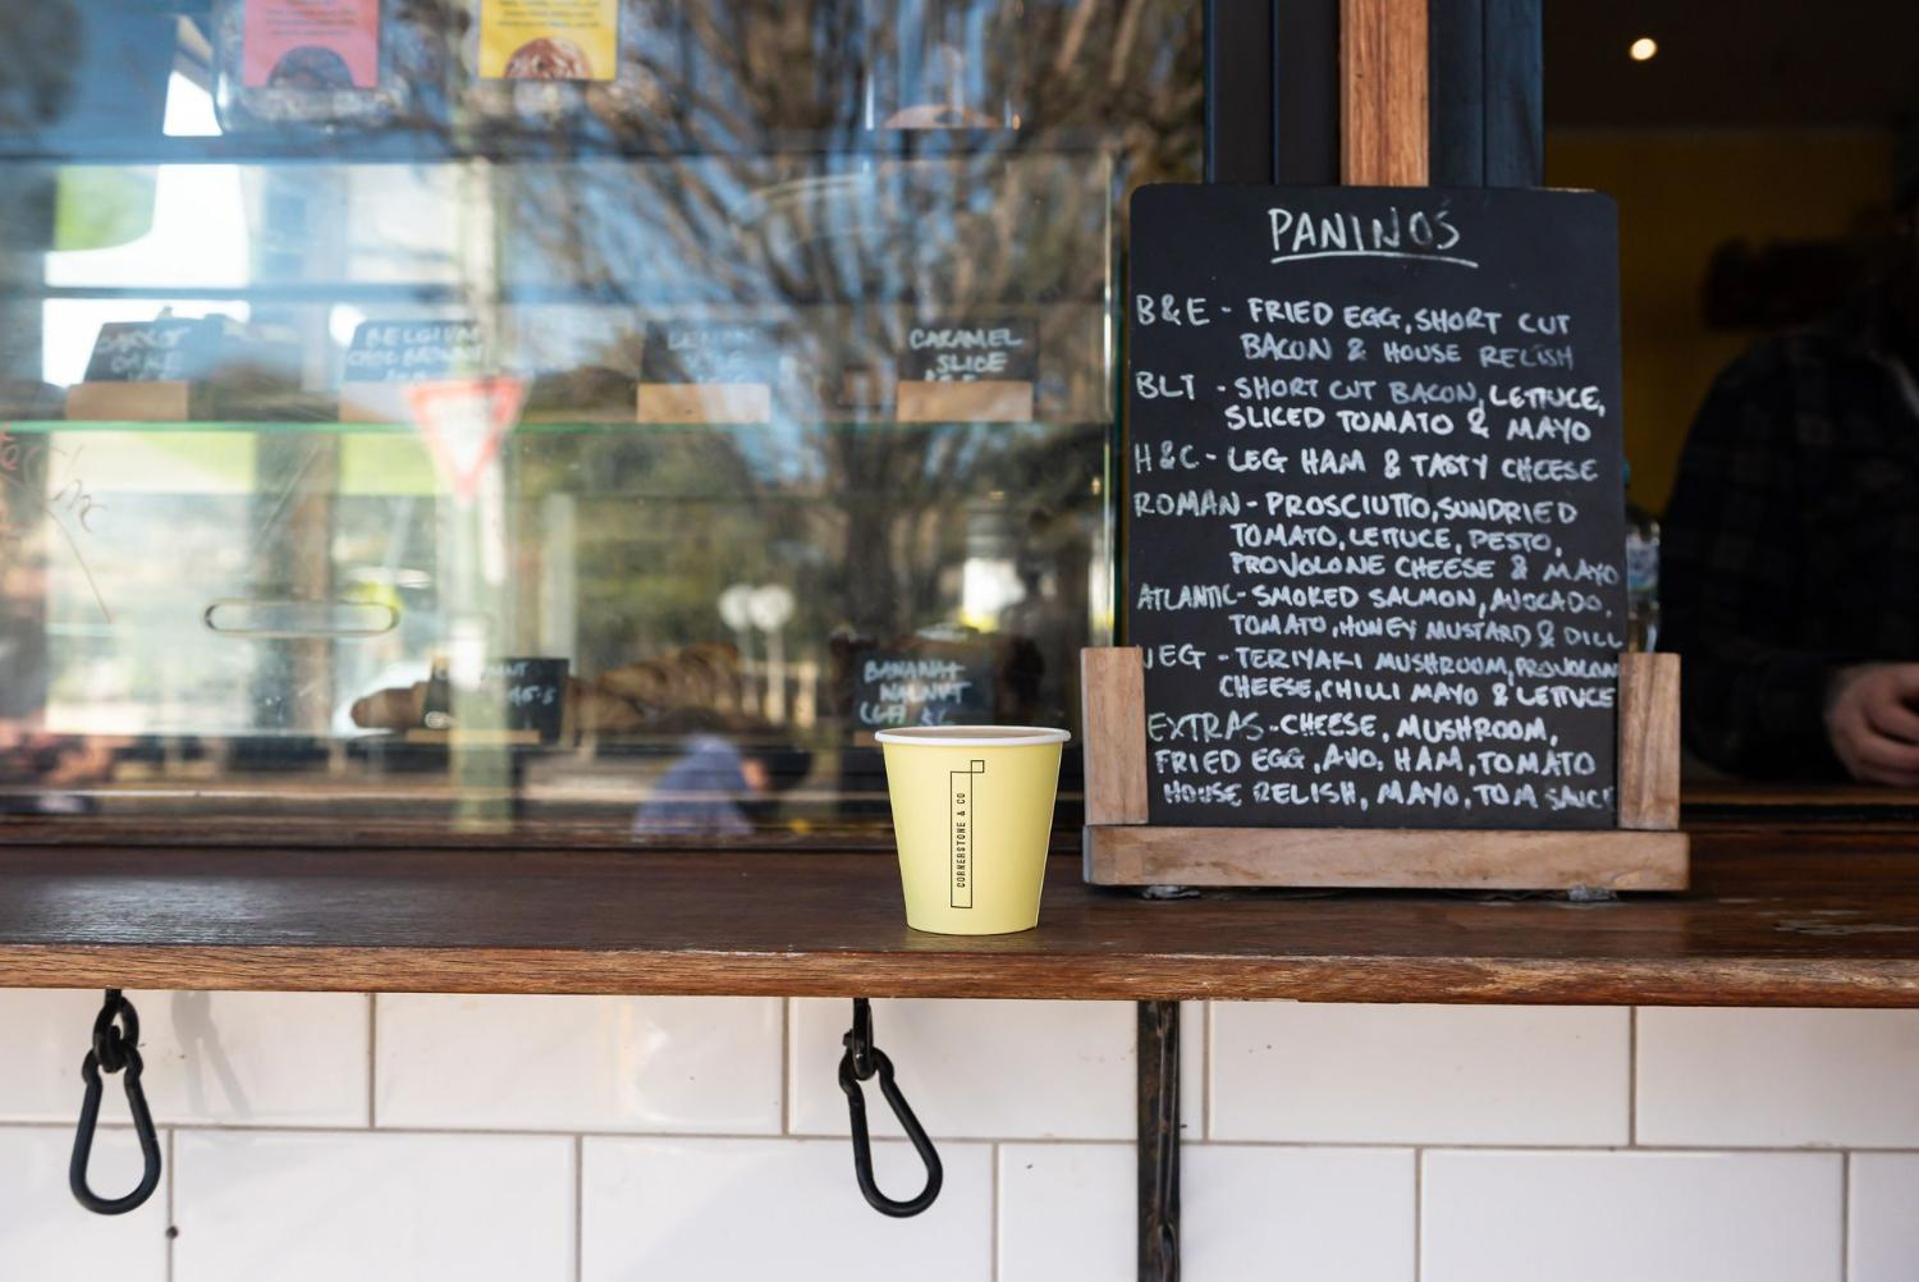 PANINOS
B&E - FRIED EGG, SHORT CUT
BACON & HOUSE RELISH
BLT - SHORT CUT BACON, LETTUCE,
SLICED TOMATO & MAYO
H&C - LEG HAM & TASTY CHEESE
ROMAN - PROSCIUTTO, SUNDRIED
TOMATO, LETTUCE, PESTO,
PROVOLONE CHEESE & MAYO
ATLANTIC - SMOKED SALMON, AVOCADO,
TOMATO, HONEY MUSTARD & DILL
VEG - TERIYAKI MUSHROOM, PROVOLON
CHEESE, CHILLI MAYO & LETTUCE
EXTRAS - CHEESE, MUSHROOM,
FRIED EGG, AVO, HAM, TOMATO
HOUSE RELISH, MAYO, TOM SAUCE
CARROT
CAKE
BELGIUM
CHOC BROWNIE
LEMON
CARAMEL
SLICE
BANANA +
WALNUT
CORNERSTONE & CO